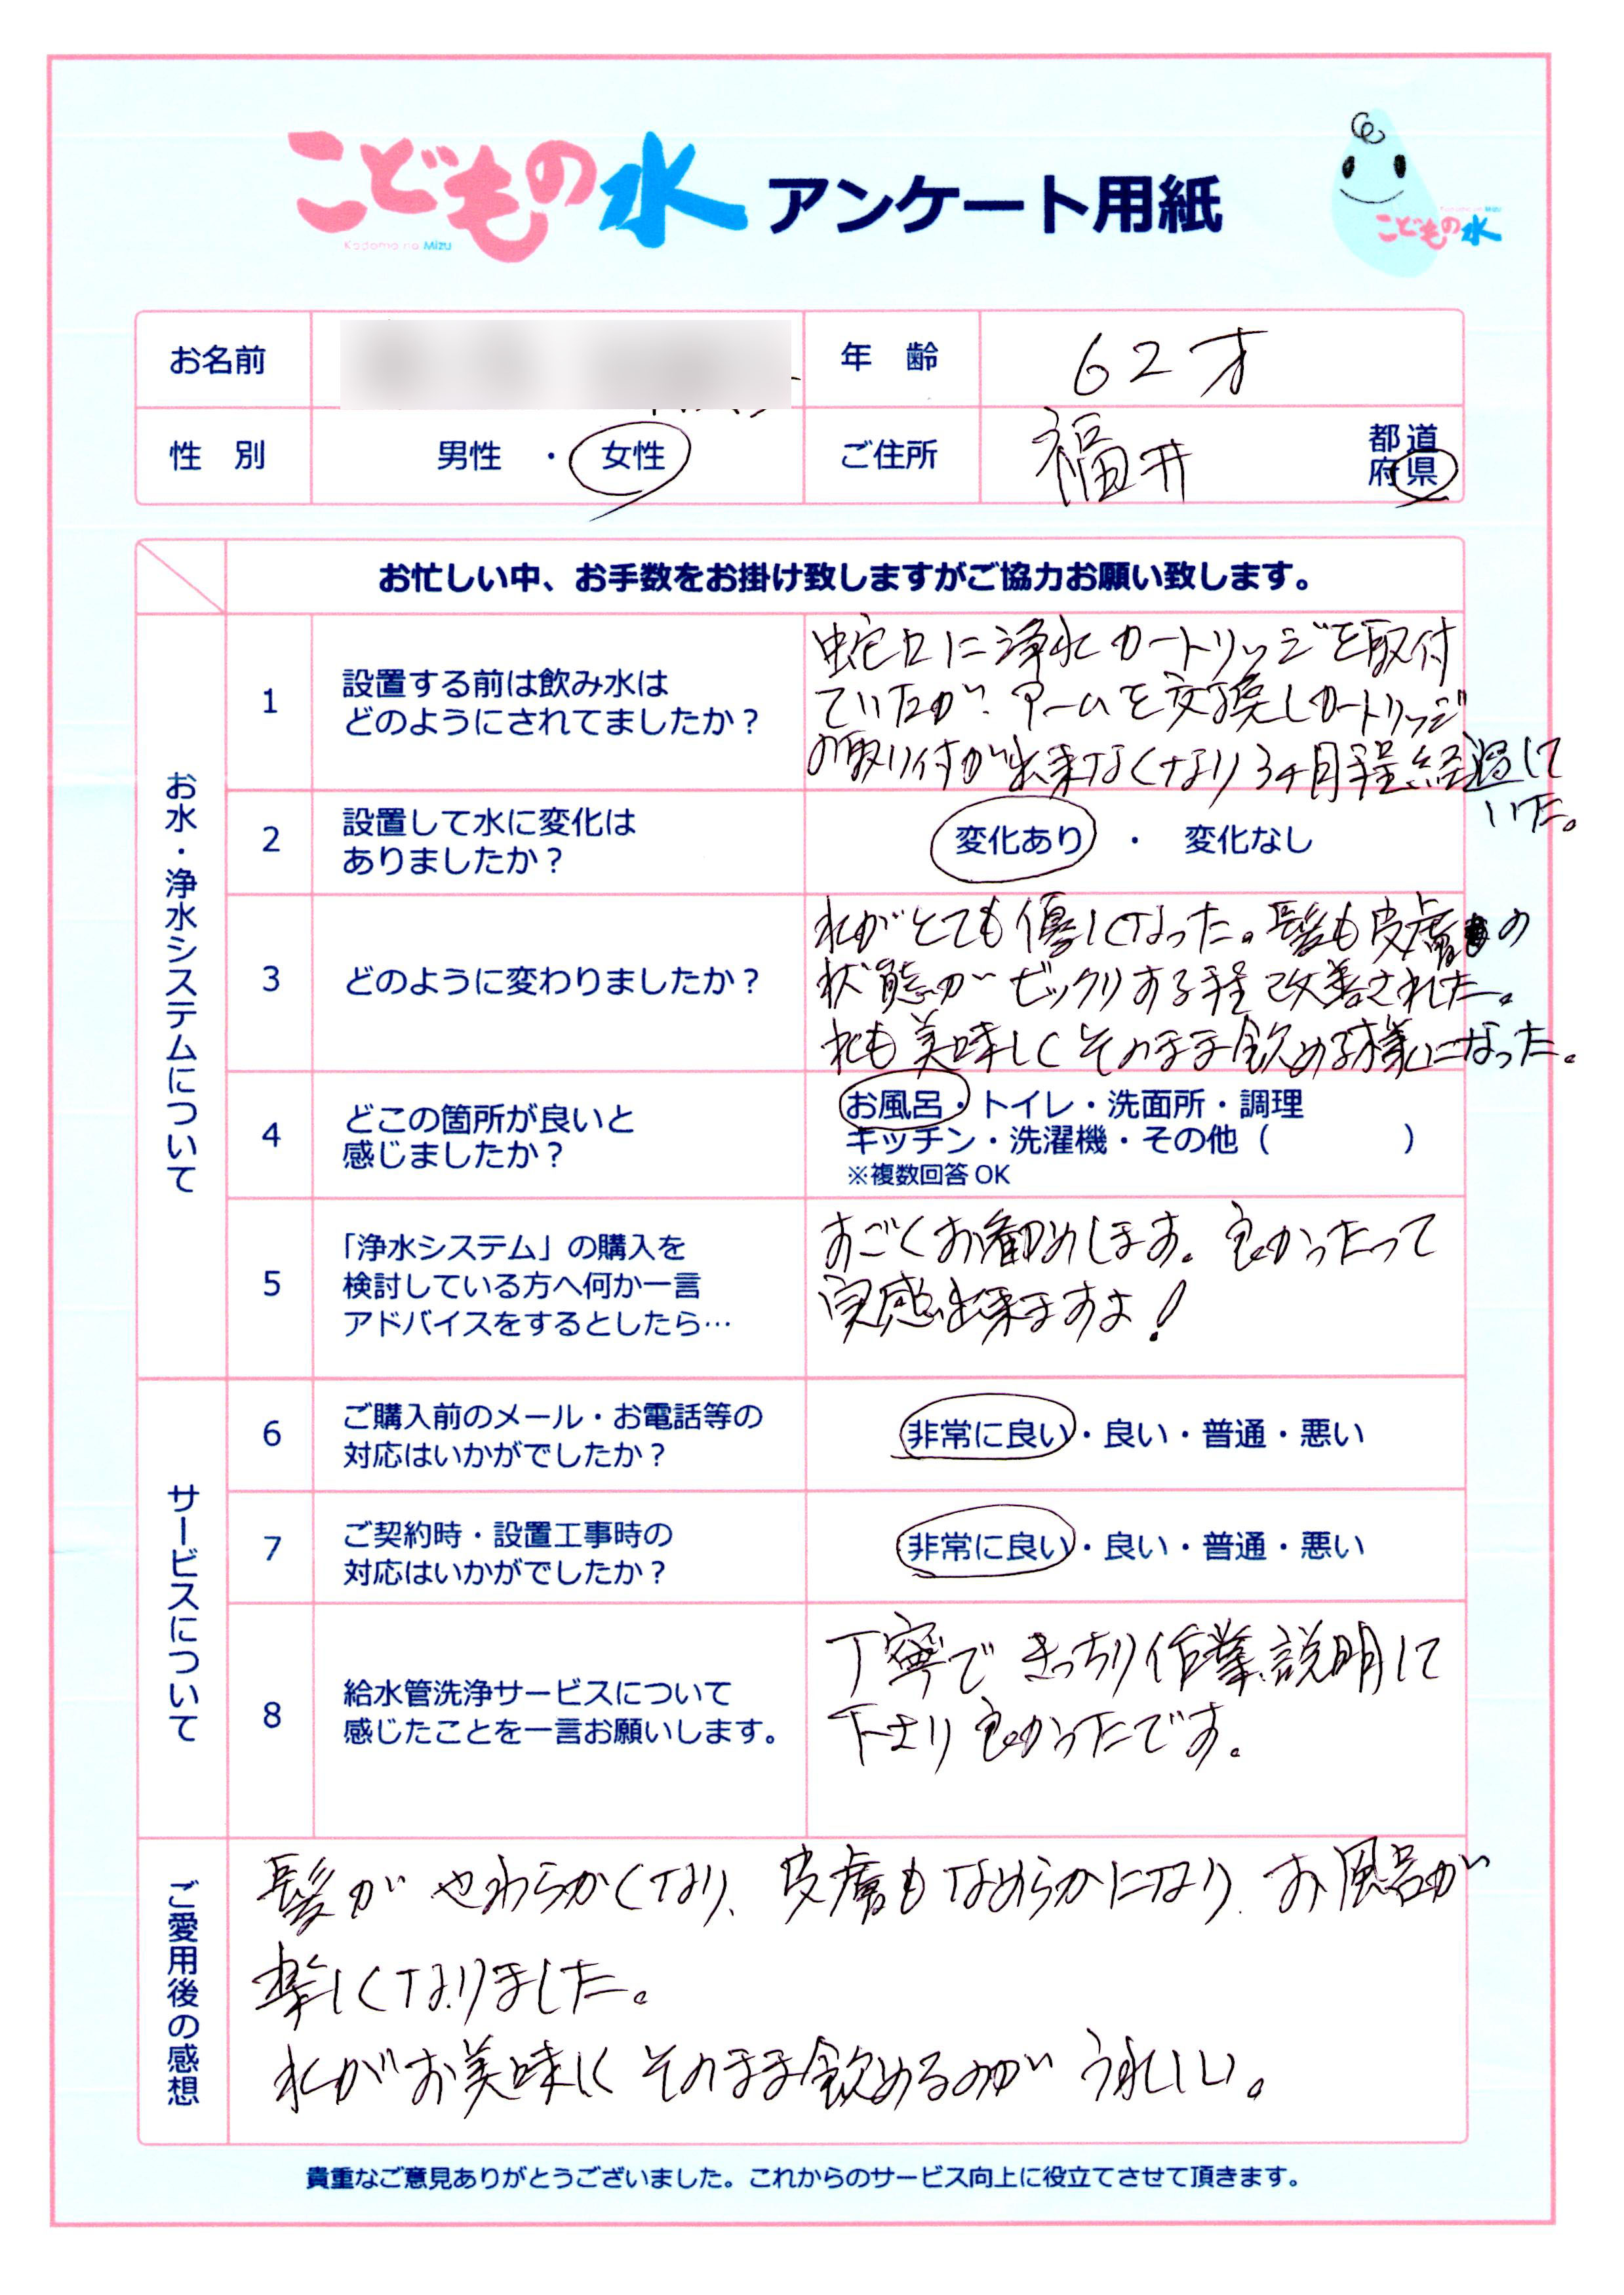 こどもの水 アンケート用紙
Kodomo no Mizu
Kodomo no Mizu
こどもの水
お名前
年 齢 62才
性 別 男性 ・ 女性
ご住所 福井 都道
府県
お忙しい中、お手数をお掛け致しますがご協力お願い致します。
お水・浄水システムについて
1
設置する前は飲み水は
どのようにされてましたか？
蛇口に浄水カートリッジを取付
ていたが、アームを交換しカートリッジ
の取り付が出来なくなり3ヶ月程経過して
いた。
2
設置して水に変化は
ありましたか？
変化あり ・ 変化なし
3
どのように変わりましたか？
水がとても優しくなった。髪も皮膚の
状態がビックリする程改善された。
水も美味しくそのまま飲める様になった。
4
どこの箇所が良いと
感じましたか？
お風呂・トイレ・洗面所・調理
キッチン・洗濯機・その他（ ）
※複数回答OK
5
「浄水システム」の購入を
検討している方へ何か一言
アドバイスをするとしたら…
すごくお勧めします。良かったって
実感出来ますよ！
サービスについて
6
ご購入前のメール・お電話等の
対応はいかがでしたか？
非常に良い・良い・普通・悪い
7
ご契約時・設置工事時の
対応はいかがでしたか？
非常に良い・良い・普通・悪い
8
給水管洗浄サービスについて
感じたことを一言お願いします。
丁寧できっちり作業、説明して
下さり良かったです。
ご愛用後の感想
髪がやわらかくなり、皮膚もなめらかになり、お風呂が
楽しくなりました。
水がお美味しくそのまま飲めるのがうれしい。
貴重なご意見ありがとうございました。これからのサービス向上に役立てさせて頂きます。